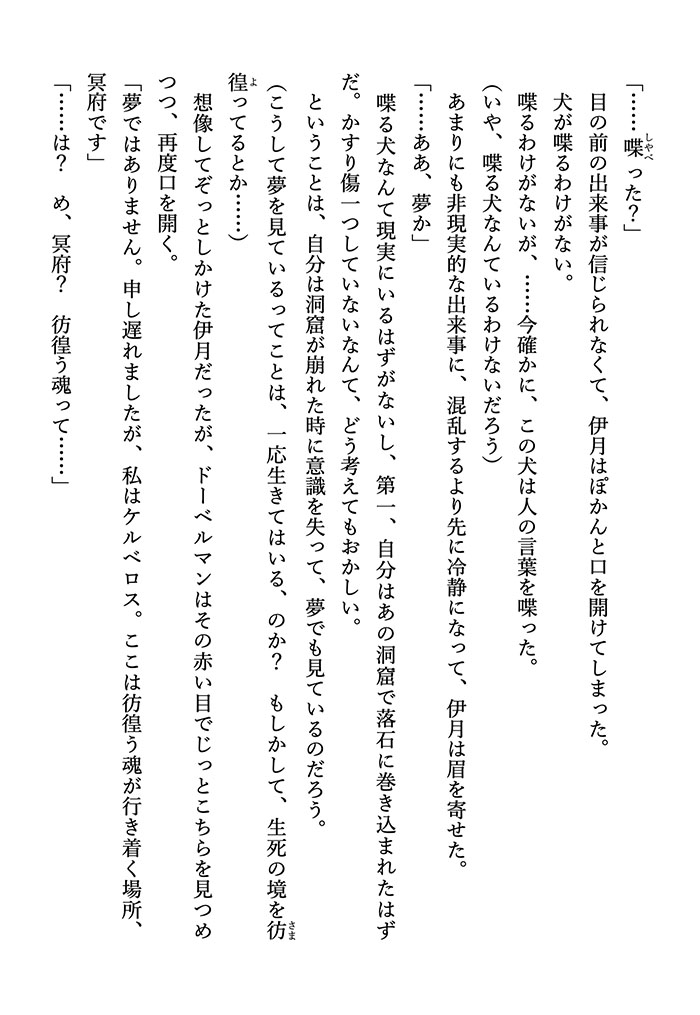 「……喋った？」
目の前の出来事が信じられなくて、伊月はぽかんと口を開けてしまった。
犬が喋るわけがない。
喋るわけがないが、……今確かに、この犬は人の言葉を喋った。
(いや、喋る犬なんているわけないだろう)
あまりにも非現実的な出来事に、混乱するより先に冷静になって、伊月は眉を寄せた。
「……ああ、夢か」
喋る犬なんて現実にいるはずがないし、第一、自分はあの洞窟で落石に巻き込まれたはず
だ。かすり傷一つしていないなんて、どう考えてもおかしい。
ということは、自分は洞窟が崩れた時に意識を失って、夢でも見ているのだろう。
(こうして夢を見ているってことは、一応生きてはいる、のか？　もしかして、生死の境を彷
徨ってるとか……)
想像してぞっとしかけた伊月だったが、ドーベルマンはその赤い目でじっとこちらを見つめ
つつ、再度口を開く。
「夢ではありません。申し遅れましたが、私はケルベロス。ここは彷徨う魂が行き着く場所、
冥府です」
「……は？　め、冥府？　彷徨う魂って……」